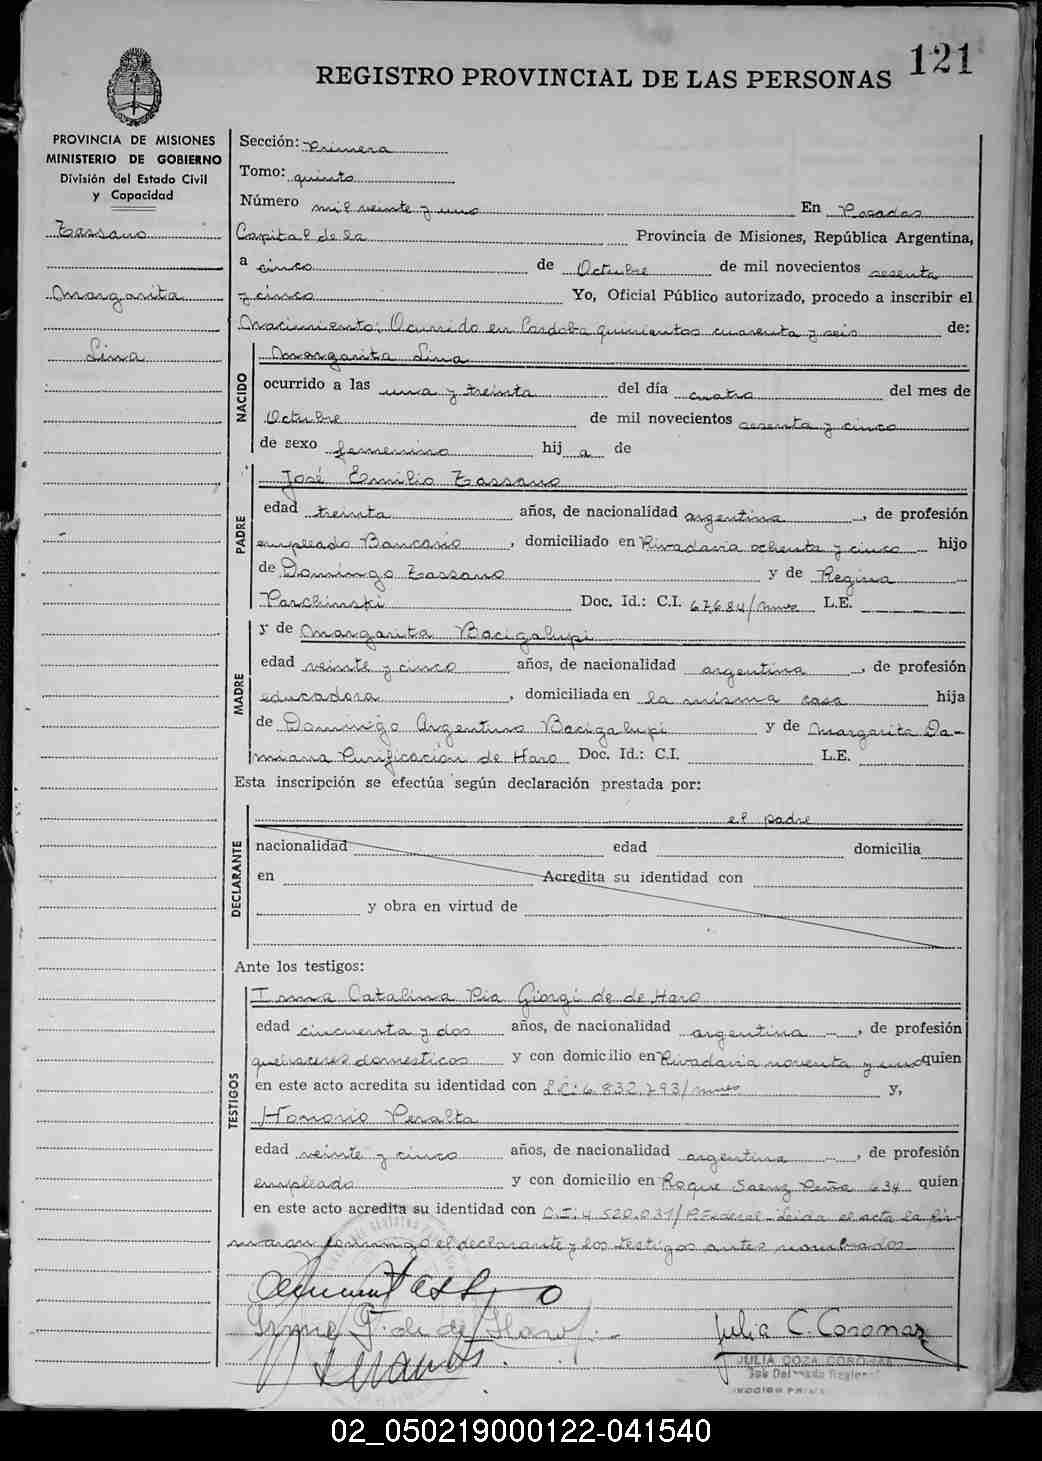 121
REGISTRO PROVINCIAL DE LAS PERSONAS
PROVINCIA DE MISIONES
MINISTERIO DE GOBIERNO
División del Estado Civil
y Capacidad
Tassano
Margarita
Lina
Sección: Primera
Tomo: quinto
Número mil veinte y uno En Posadas
Capital de la Provincia de Misiones, República Argentina,
a cinco de Octubre de mil novecientos sesenta
y cinco Yo, Oficial Público autorizado, procedo a inscribir el
Nacimiento: Ocurrido en Cordoba quinientos cuarenta y seis de:
NACIDO
Margarita Lina
ocurrido a las una y treinta del día cuatro del mes de
Octubre de mil novecientos sesenta y cinco
de sexo femenino hij a de
PADRE
José Emilio Tassano
edad treinta años, de nacionalidad argentina, de profesión
empleado Bancario, domiciliado en Rivadavia ochenta y cinco hijo
de Domingo Tassano y de Regina
Parchinski Doc. Id.: C.I. 67.684/mnes L.E.
MADRE
y de Margarita Bacigalupi
edad veinte y cinco años, de nacionalidad argentina, de profesión
educadora, domiciliada en la misma casa hija
de Domingo Argentino Bacigalupi y de Margarita Da-
miana Purificación de Haro Doc. Id.: C.I. L.E.
Esta inscripción se efectúa según declaración prestada por:
el padre
DECLARANTE
nacionalidad edad domicilia
en Acredita su identidad con
y obra en virtud de
Ante los testigos:
TESTIGOS
Irma Catalina Pia Giorgi de de Haro
edad cincuenta y dos años, de nacionalidad argentina, de profesión
quehaceres domesticos y con domicilio en Rivadavia noventa y uno quien
en este acto acredita su identidad con L.C: 6.832.793/mnes y,
Honorio Peralta
edad veinte y cinco años, de nacionalidad argentina, de profesión
empleado y con domicilio en Roque Saenz Peña 634 quien
en este acto acredita su identidad con C.I: 4.520.031/P.Federal Leida el acta la fir-
maron conmigo el declarante y los testigos antes nombrados
Tassano
Irma G. de de Haro
Julia C. Coronas
JULIA DOZA CORONAS
02_050219000122-041540